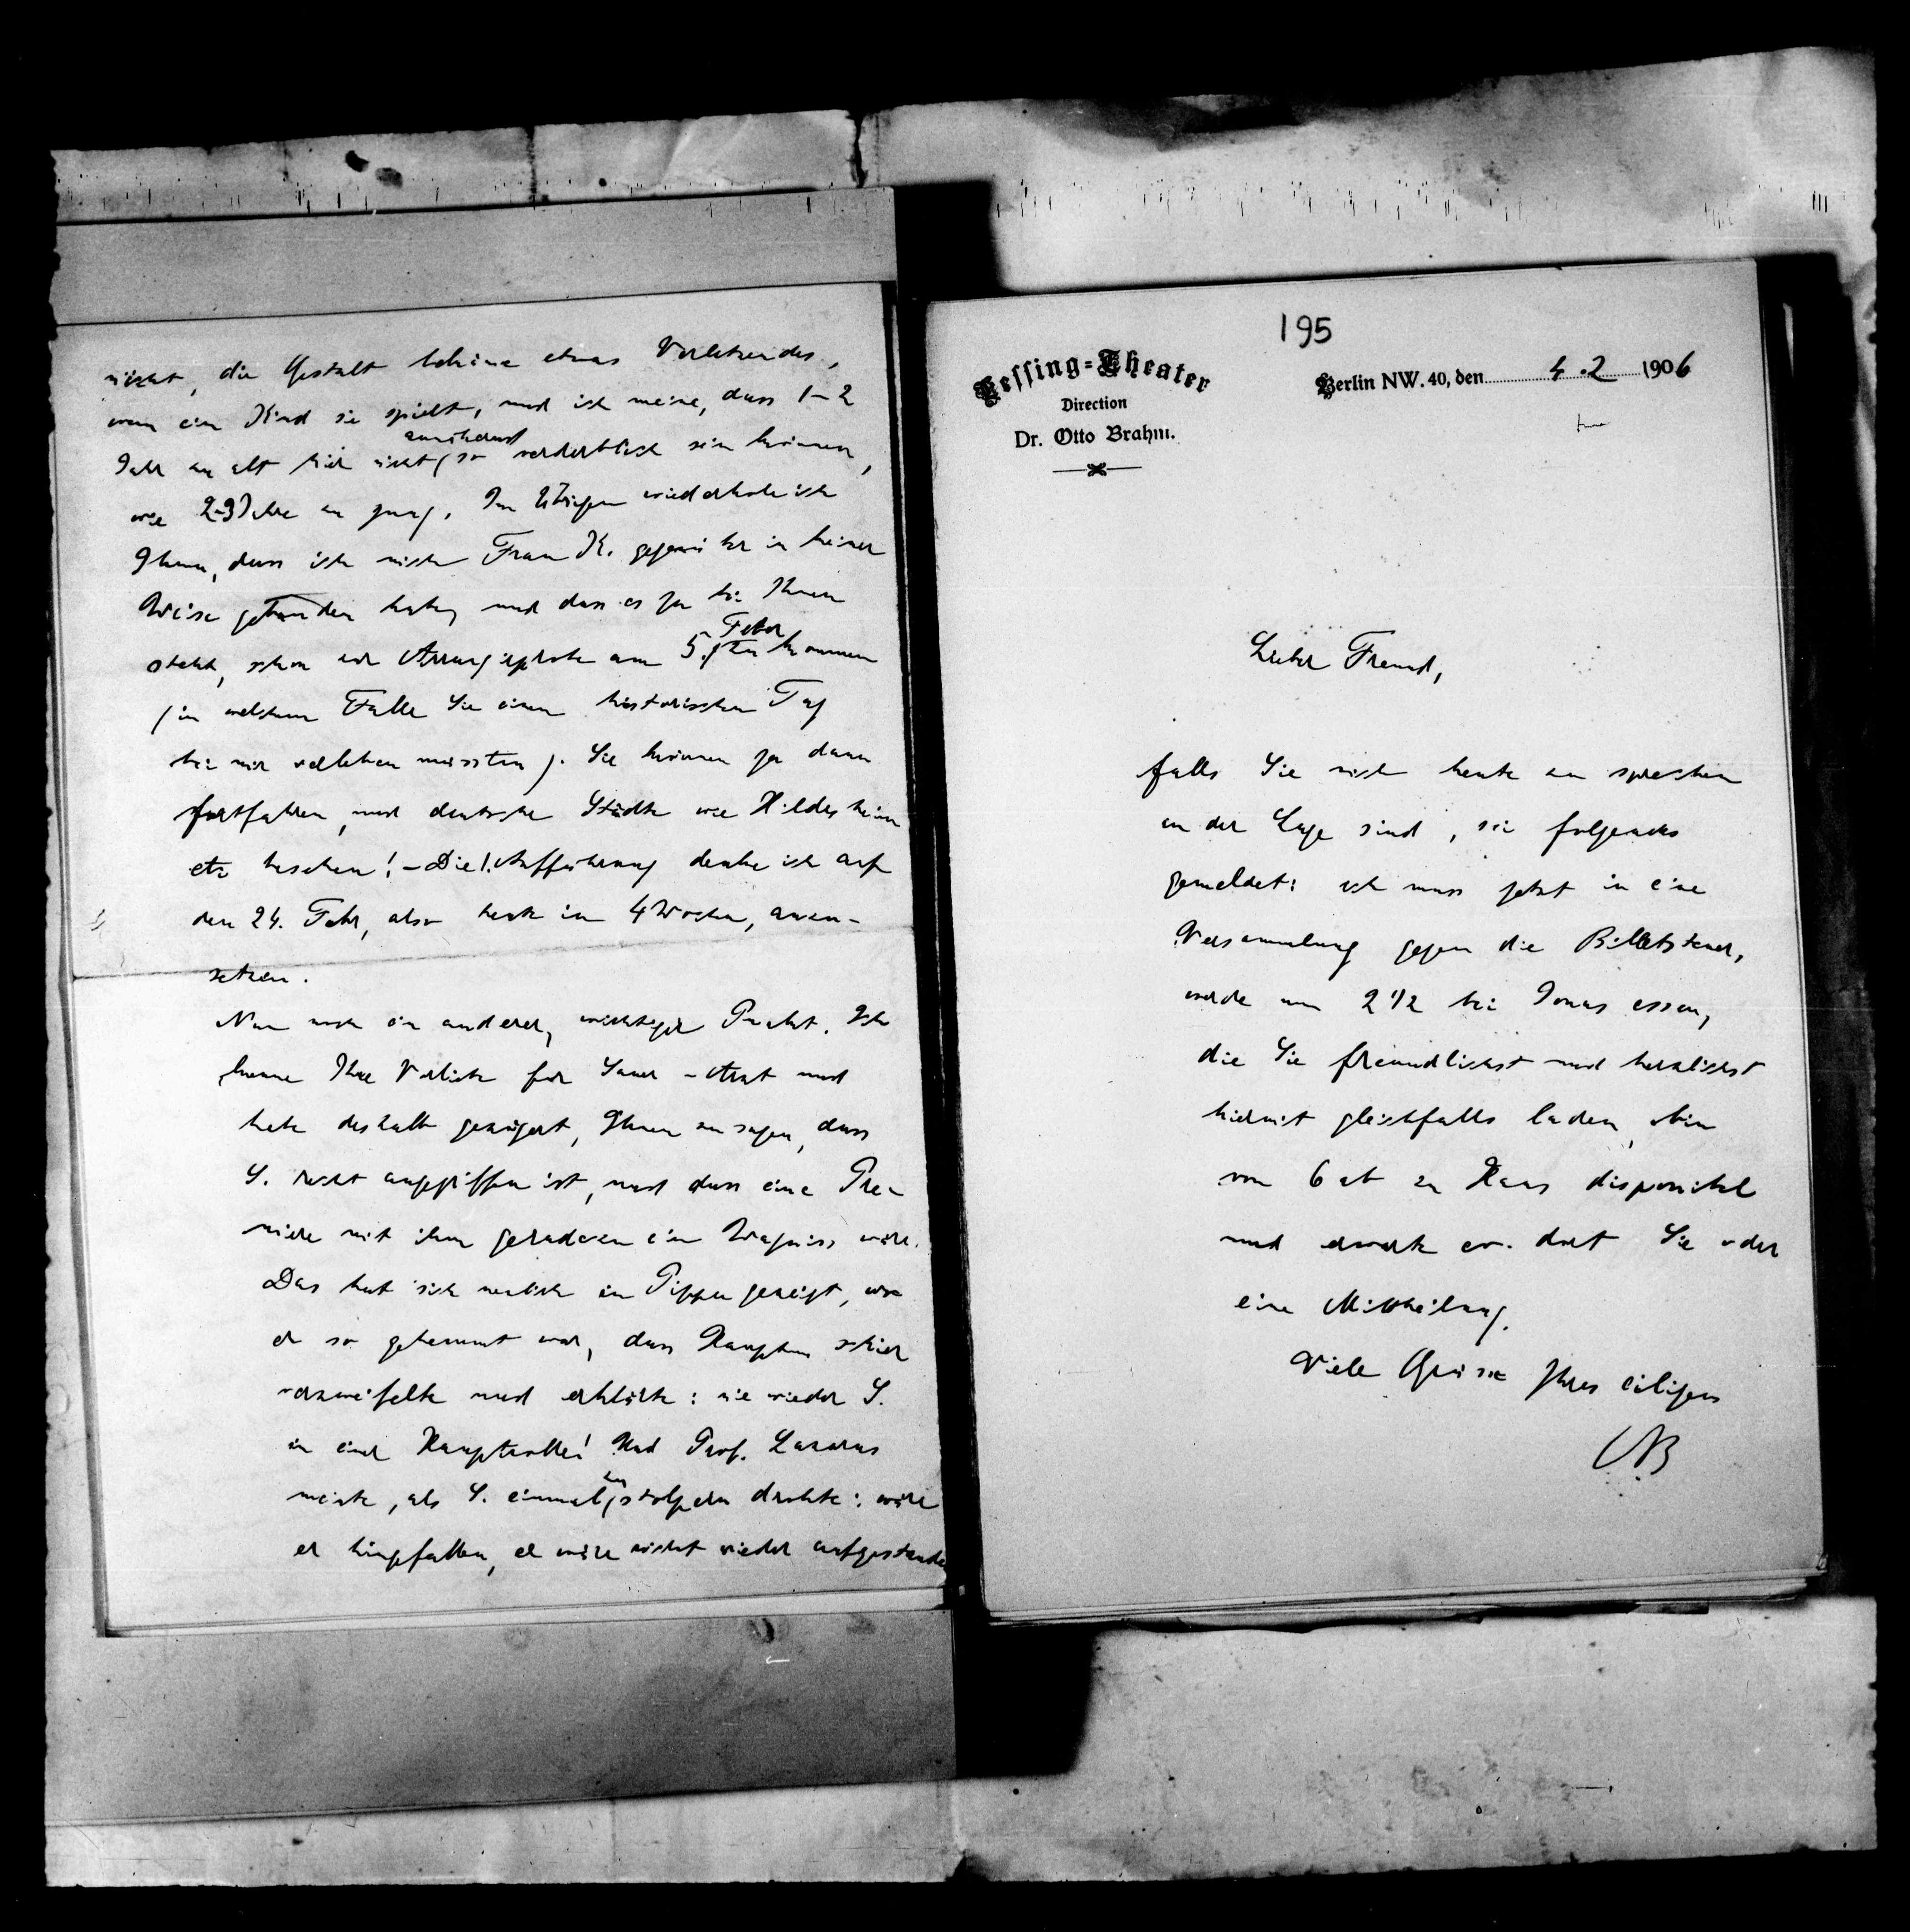 nicht, die Gestalt bekäme etwas Verletzendes,
wenn ein Kind sie spielt, und ich meine, dass 1–2
Jahr zu alt hier nicht annähernd so verderblich sein können,
wie 2–3 Jahre zu jung. Im Übrigen wiederhole ich
Ihnen, dass ich mich Frau K. gegenüber in keiner
Weise gebunden habe, und dass es ja bei Ihnen
steht, schon zur Arrangirprobe am 5. Febr zu kommen
(in welchem Falle Sie einen historischen Tag
bei mir verleben müssten). Sie können ja dann
fortfahren, und deutsche Städte wie Hildesheim
etc besehen! – Die 1. Aufführung denke ich auf
den 24. Febr, also heute in 4 Wochen, anzu-
setzen.
Nun noch ein anderer, wichtiger Punkt. Ich
kenne Ihre Vorliebe für Sauer-Arzt und
habe deshalb gezögert, Ihnen zu sagen, dass
S. recht angegriffen ist, und dass eine Pre-
miere mit ihm geradezu ein Wagniss wäre.
Das hat sich neulich in Pippa gezeigt, wo
er so gehemmt war, dass Hauptm schier
verzweifelte und erklärte: nie wieder S.
in einer Hauptrolle! Und Prof. Lazarus
meinte, als S. einmal zu stolpern drohte: wäre
er hingefallen, er wäre nicht wieder aufgestanden
195
Lessing-Theater
Direction
Dr. Otto Brahm.
Berlin NW. 40, den 4.2 1906
Lieber Freund,
falls Sie nicht heute zu sprechen
in der Lage sind, sei folgendes
gemeldet: ich muss jetzt in eine
Versammlung gegen die Billetsteuer,
werde um 2 1/2 bei Jonas essen,
die Sie freundlichst und herzlichst
hiermit gleichfalls laden, bin
von 6 ab zu Haus disponibel
und erwarte ev. dort Sie oder
eine Mittheilung.
Viele Grüsse Ihres eiligen
OB